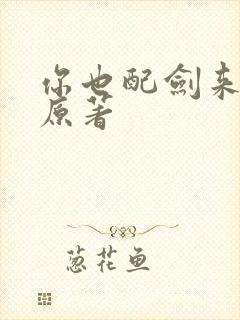 你也配剑来
原著
葱花鱼